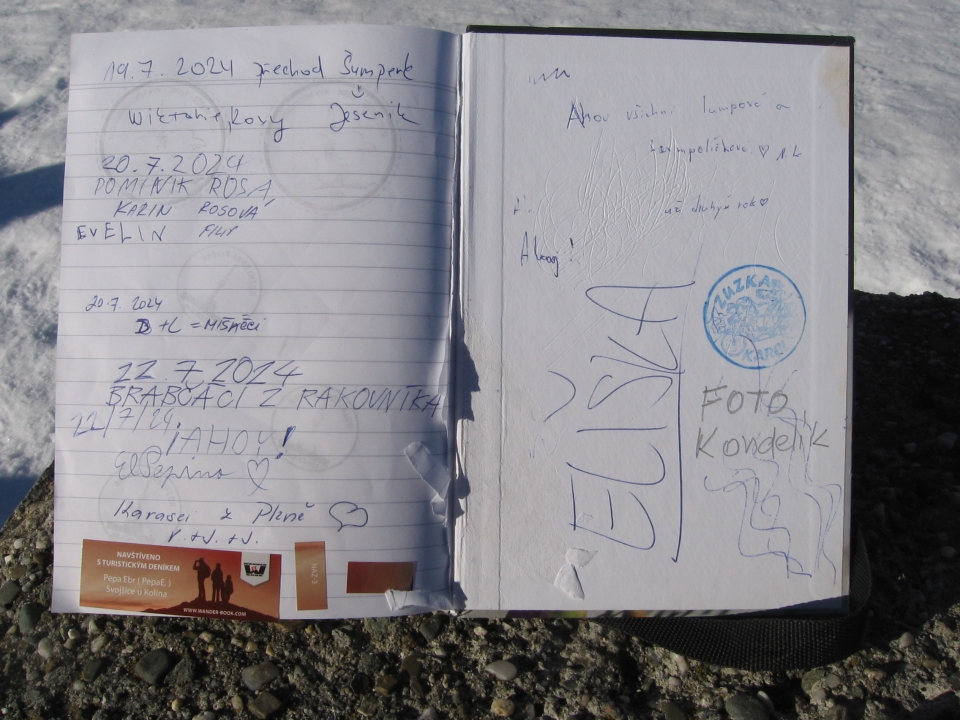 19.7.2024 přechod Šumperk
Jeseník
20.7.2024
DOMINIK ROSA
KARIN ROSOVÁ
EVELIN FILIP
20.7.2024
D+L = MIŠŇÁCI
22.7.2024
BRABČÁCI Z RAKOVNÍKA
22/7/24.
¡AHOY!
El Pepino ♡
Karasei z Plzně ♡
V. +J. +J.
NAVŠTÍVENO
S TURISTICKÝM DENÍKEM
Pepa Ebr ( PepaE. )
Svojšice u Kolína
WWW.WANDER-BOOK.COM
Ahoj všichni lumpové a
♡
už druhý rok ♡
Ahooj!
ELIŠKA
ZUZKA
KAREL
FOTO
Kondelík